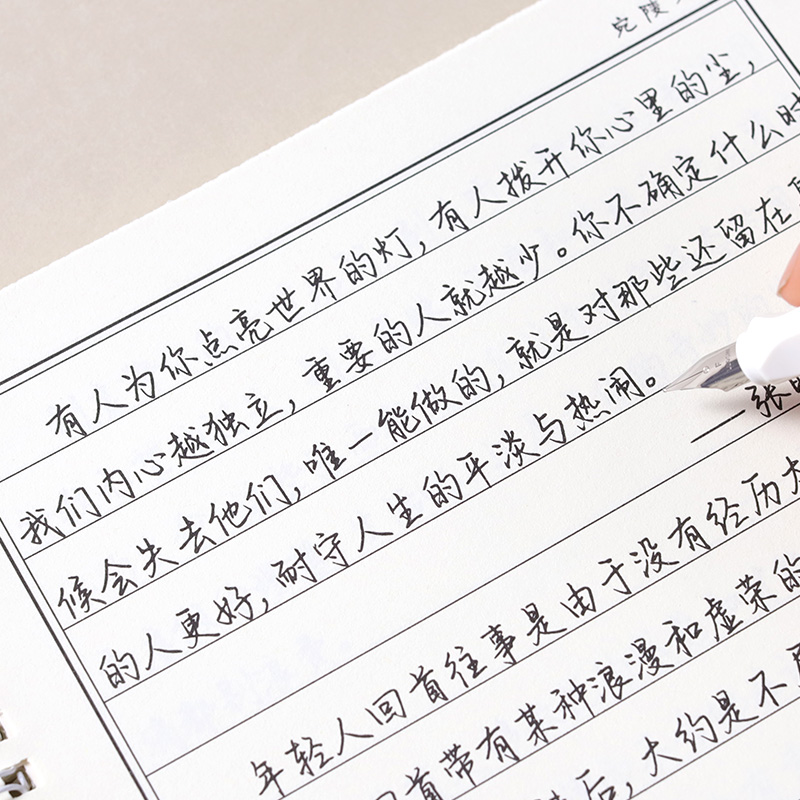 宛陵
有人为你点亮世界的灯，有人拨开你心里的尘，
我们内心越独立，重要的人就越少。你不确定什么时
候会失去他们，唯一能做的，就是对那些还留在
的人更好，耐守人生的平淡与热闹。
——张
年轻人回首往事是由于没有经历大
回首带有某种浪漫和虚荣的
后，大约是不